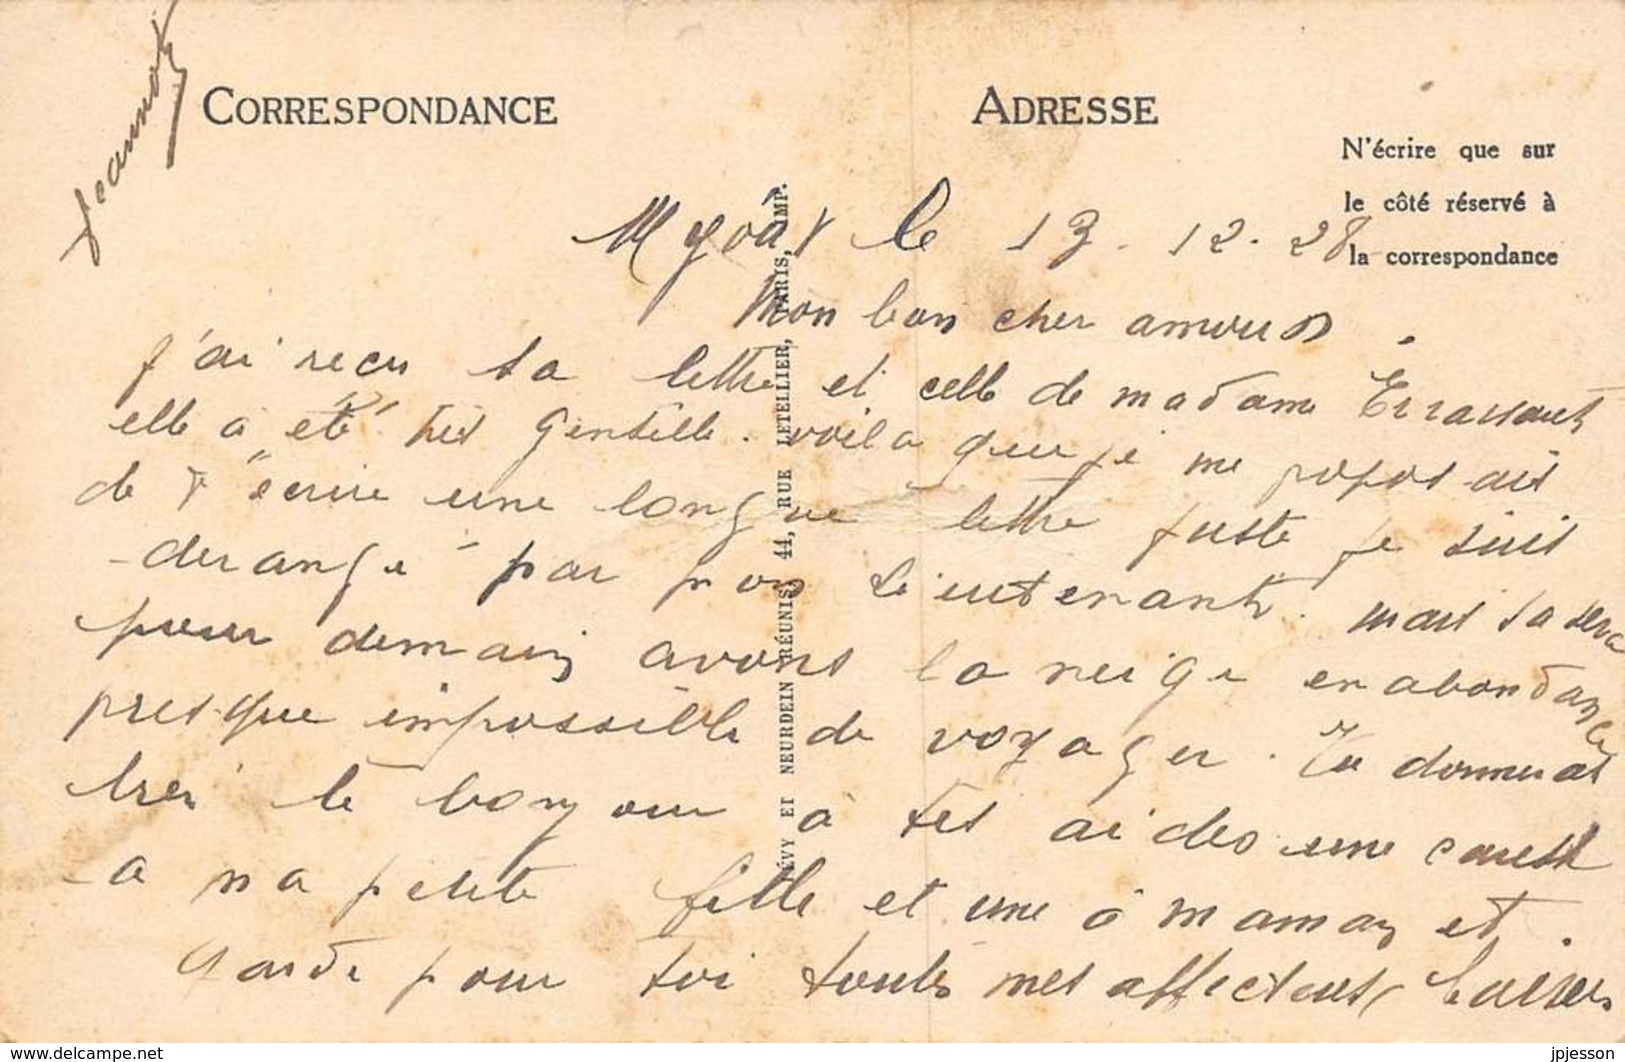 Jeannot
CORRESPONDANCE
ADRESSE
N'écrire que sur
le côté réservé à
la correspondance
le 13.12.28
Mon bon cher amour.
j'ai recu ta lettre et celle de madame
elle a été très gentille. voila que je me proposais
de t'écrire une longue lettre juste je suis
derangé par mon lieutenant. mais sa sera
pour demain avons la neige en abondance
presque impossible de voyager. Tu donneras
le bonjour à tes aides une caresse
a ma petite fille et une à maman et.
garde pour toi toutes mes affecteuses baisers
LÉVY ET NEURDEIN RÉUNIS, 44, RUE LETELLIER, PARIS, IMP.
www.delcampe.net
jpjesson